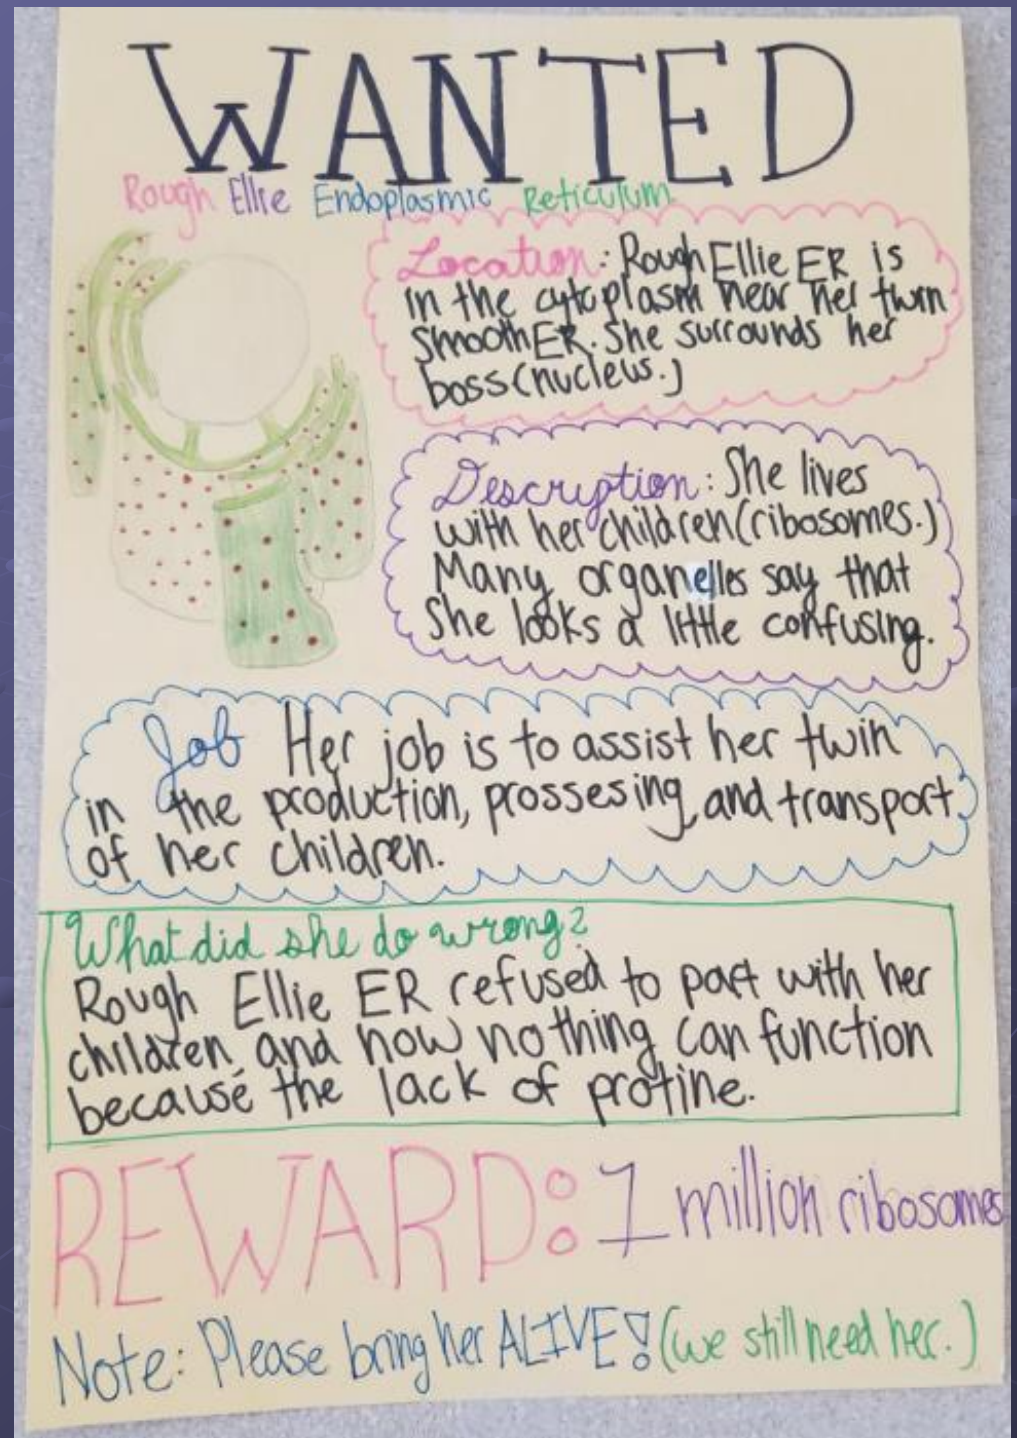 WANTED
Rough Ellie Endoplasmic Reticulum
Location: Rough Ellie ER is
in the cytoplasm near her twin
smooth ER. She surrounds her
boss (nucleus.)
Description: She lives
with her children (ribosomes.)
Many organelles say that
She looks a little confusing.
Job Her job is to assist her twin
in the production, prossesing, and transport
of her children.
What did she do wrong?
Rough Ellie ER refused to part with her
children, and now nothing can function
because the lack of protine.
REWARD: 1 million ribosomes
Note: Please bring her ALIVE! (we still need her.)